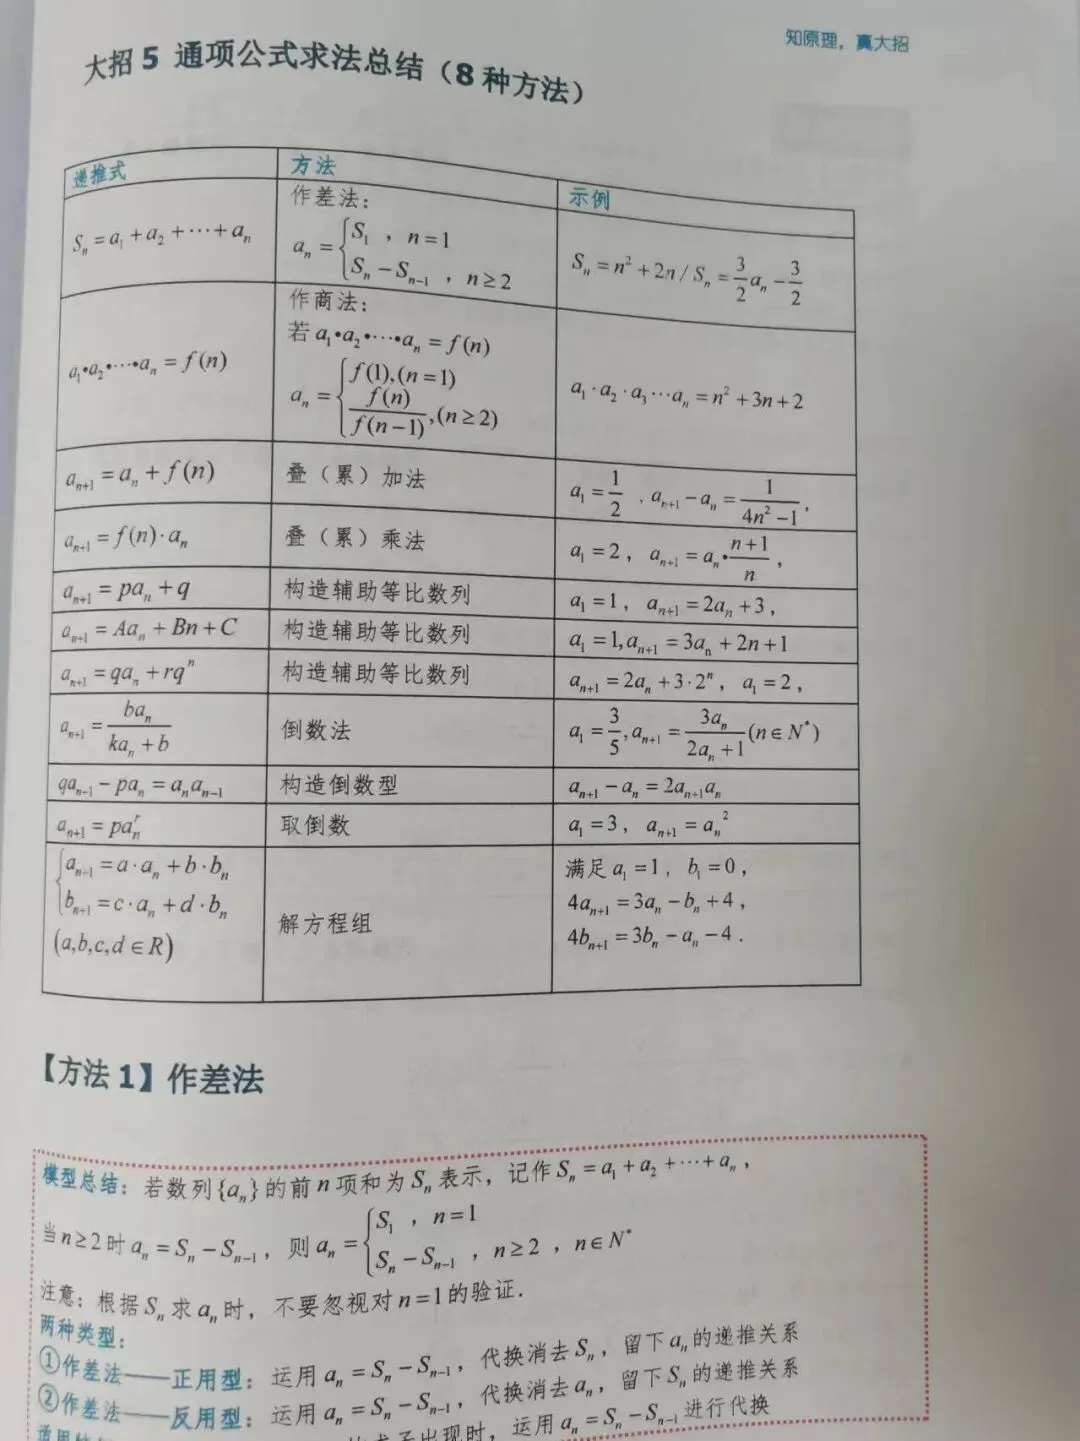 知原理，真大招
大招 5 通项公式求法总结（8 种方法）
递推式 方法 示例
Sₙ = a₁ + a₂ + ⋯ + aₙ 作差法： aₙ = { S₁ ， n = 1 Sₙ − Sₙ₋₁ ， n ≥ 2 Sₙ = n² + 2n / Sₙ = 3/2 aₙ − 3/2
a₁•a₂•⋯•aₙ = f(n) 作商法： 若 a₁•a₂•⋯•aₙ = f(n) aₙ = { f(1),(n = 1) f(n)/f(n−1),(n ≥ 2) a₁·a₂·a₃⋯aₙ = n² + 3n + 2
aₙ₊₁ = aₙ + f(n) 叠（累）加法 a₁ = 1/2 , aₙ₊₁ − aₙ = 1/(4n² − 1) ,
aₙ₊₁ = f(n)·aₙ 叠（累）乘法 a₁ = 2， aₙ₊₁ = aₙ•(n+1)/n ，
aₙ₊₁ = paₙ + q 构造辅助等比数列 a₁ = 1， aₙ₊₁ = 2aₙ + 3，
aₙ₊₁ = Aaₙ + Bn + C 构造辅助等比数列 a₁ = 1, aₙ₊₁ = 3aₙ + 2n + 1
aₙ₊₁ = qaₙ + rqⁿ 构造辅助等比数列 aₙ₊₁ = 2aₙ + 3·2ⁿ， a₁ = 2，
aₙ₊₁ = baₙ/(kaₙ + b) 倒数法 a₁ = 3/5, aₙ₊₁ = 3aₙ/(2aₙ + 1) (n ∈ N*)
qaₙ₋₁ − paₙ = aₙaₙ₋₁ 构造倒数型 aₙ₊₁ − aₙ = 2aₙ₊₁aₙ
aₙ₊₁ = paₙʳ 取倒数 a₁ = 3， aₙ₊₁ = aₙ²
{ aₙ₊₁ = a·aₙ + b·bₙ 满足 a₁ = 1， b₁ = 0，
bₙ₊₁ = c·aₙ + d·bₙ 解方程组 4aₙ₊₁ = 3aₙ − bₙ + 4，
(a,b,c,d ∈ R) 4bₙ₊₁ = 3bₙ − aₙ − 4．
【方法 1】作差法
模型总结：若数列{aₙ}的前 n 项和为 Sₙ 表示，记作 Sₙ = a₁ + a₂ + ⋯ + aₙ，
当 n ≥ 2 时 aₙ = Sₙ − Sₙ₋₁，则 aₙ = { S₁ ， n = 1 Sₙ − Sₙ₋₁ ， n ≥ 2 ， n ∈ N*
注意：根据 Sₙ 求 aₙ 时，不要忽视对 n = 1 的验证．
两种类型：
①作差法——正用型：运用 aₙ = Sₙ − Sₙ₋₁，代换消去 Sₙ，留下 aₙ 的递推关系
②作差法——反用型：运用 aₙ = Sₙ − Sₙ₋₁，代换消去 aₙ，留下 Sₙ 的递推关系
式子出现时，运用 aₙ = Sₙ − Sₙ₋₁ 进行代换